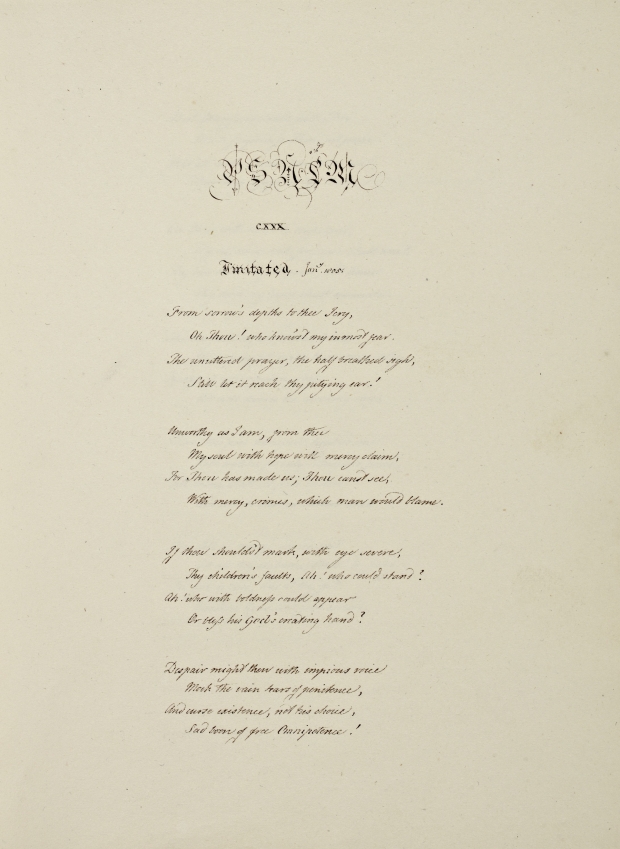 PSALM
CXXX.
Imitated. Jany. 1805.
From sorrow's depths to thee I cry,
Oh Thou! who know'st my inmost fear.
The unuttered prayer, the half breathed sigh,
Still let it reach thy pitying ear!
Unworthy as I am, from thee
My soul with hope will mercy claim,
For Thou has made us; Thou canst see,
With mercy, crimes, which man would blame.
If thou should'st mark, with eye severe,
Thy children's faults, Ah! who could stand?
Ah! who with boldness could appear
Or bless his God's creating hand?
Despair might then with impious voice
Mock the vain tears of penitence,
And curse existence, not his choice,
Sad boon of free Omnipotence!